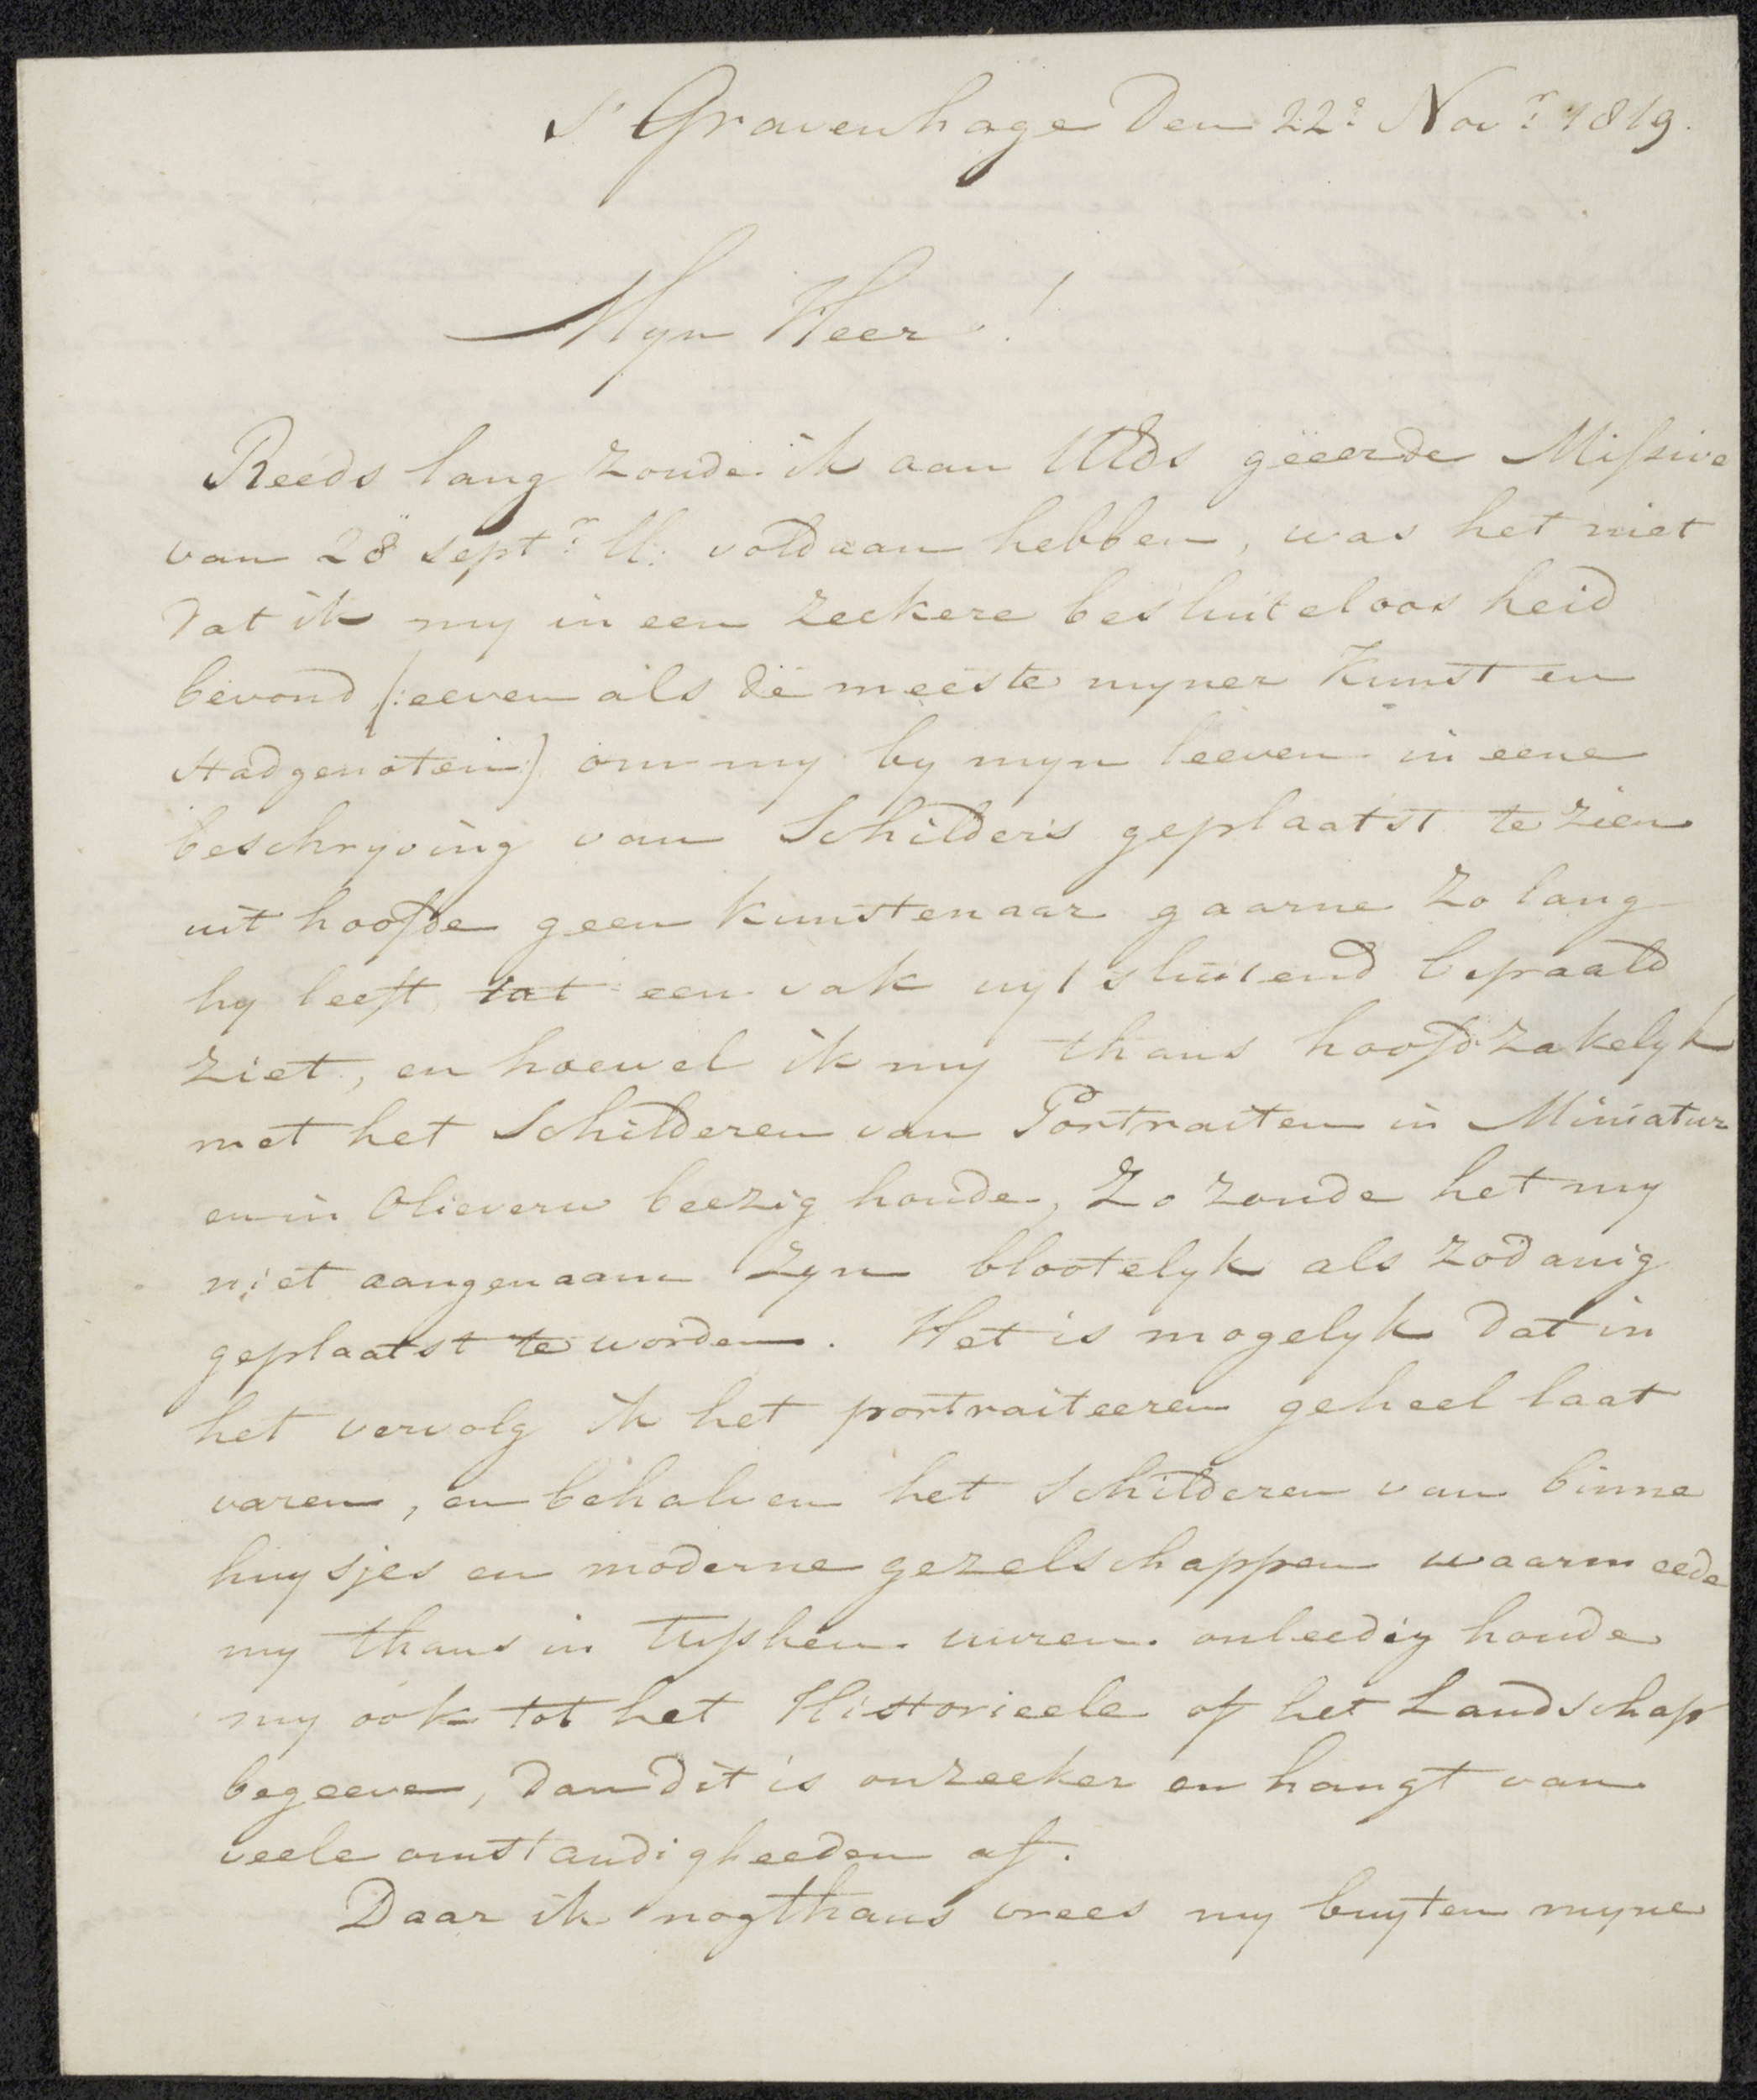 S' Gravenhage den 22e Novr 1819.
Myn Heer!
Reeds lang zoude ik aan UEds geëerde Missive
van 28 septr ll. voldaan hebben, was het niet
dat ik my in een zeekere besluiteloosheid
bevond (: eeven als de meeste myner Kunst en
stadgenoten:) om my by myn leeven in eene
beschryving van Schilders geplaatst te zien
uit hoofde geen kunstenaar gaarne zo lang
hy leeft tot een vak uytsluitend bepaald
ziet, en hoewel ik my thans hoofdzakelyk
met het Schilderen van Portraiten in Miniatur
en in Olieverw beezig houde, Zo zoude het my
niet aangenaam zyn blootelyk als zodanig
geplaatst te worden. Het is mogelyk dat in
het vervolg ik het portraiteeren geheel laat
varen, en behalven het schilderen van binne
huysjes en moderne gezelschappen waarmeede
my thans in tusshen uuren onleedig houde
my ook tot het Historieele of het Landschap
begeeve, dan dit is onzeeker en hangt van
veele omstandigheeden af.
Daar ik nogthans vrees my buyten myne